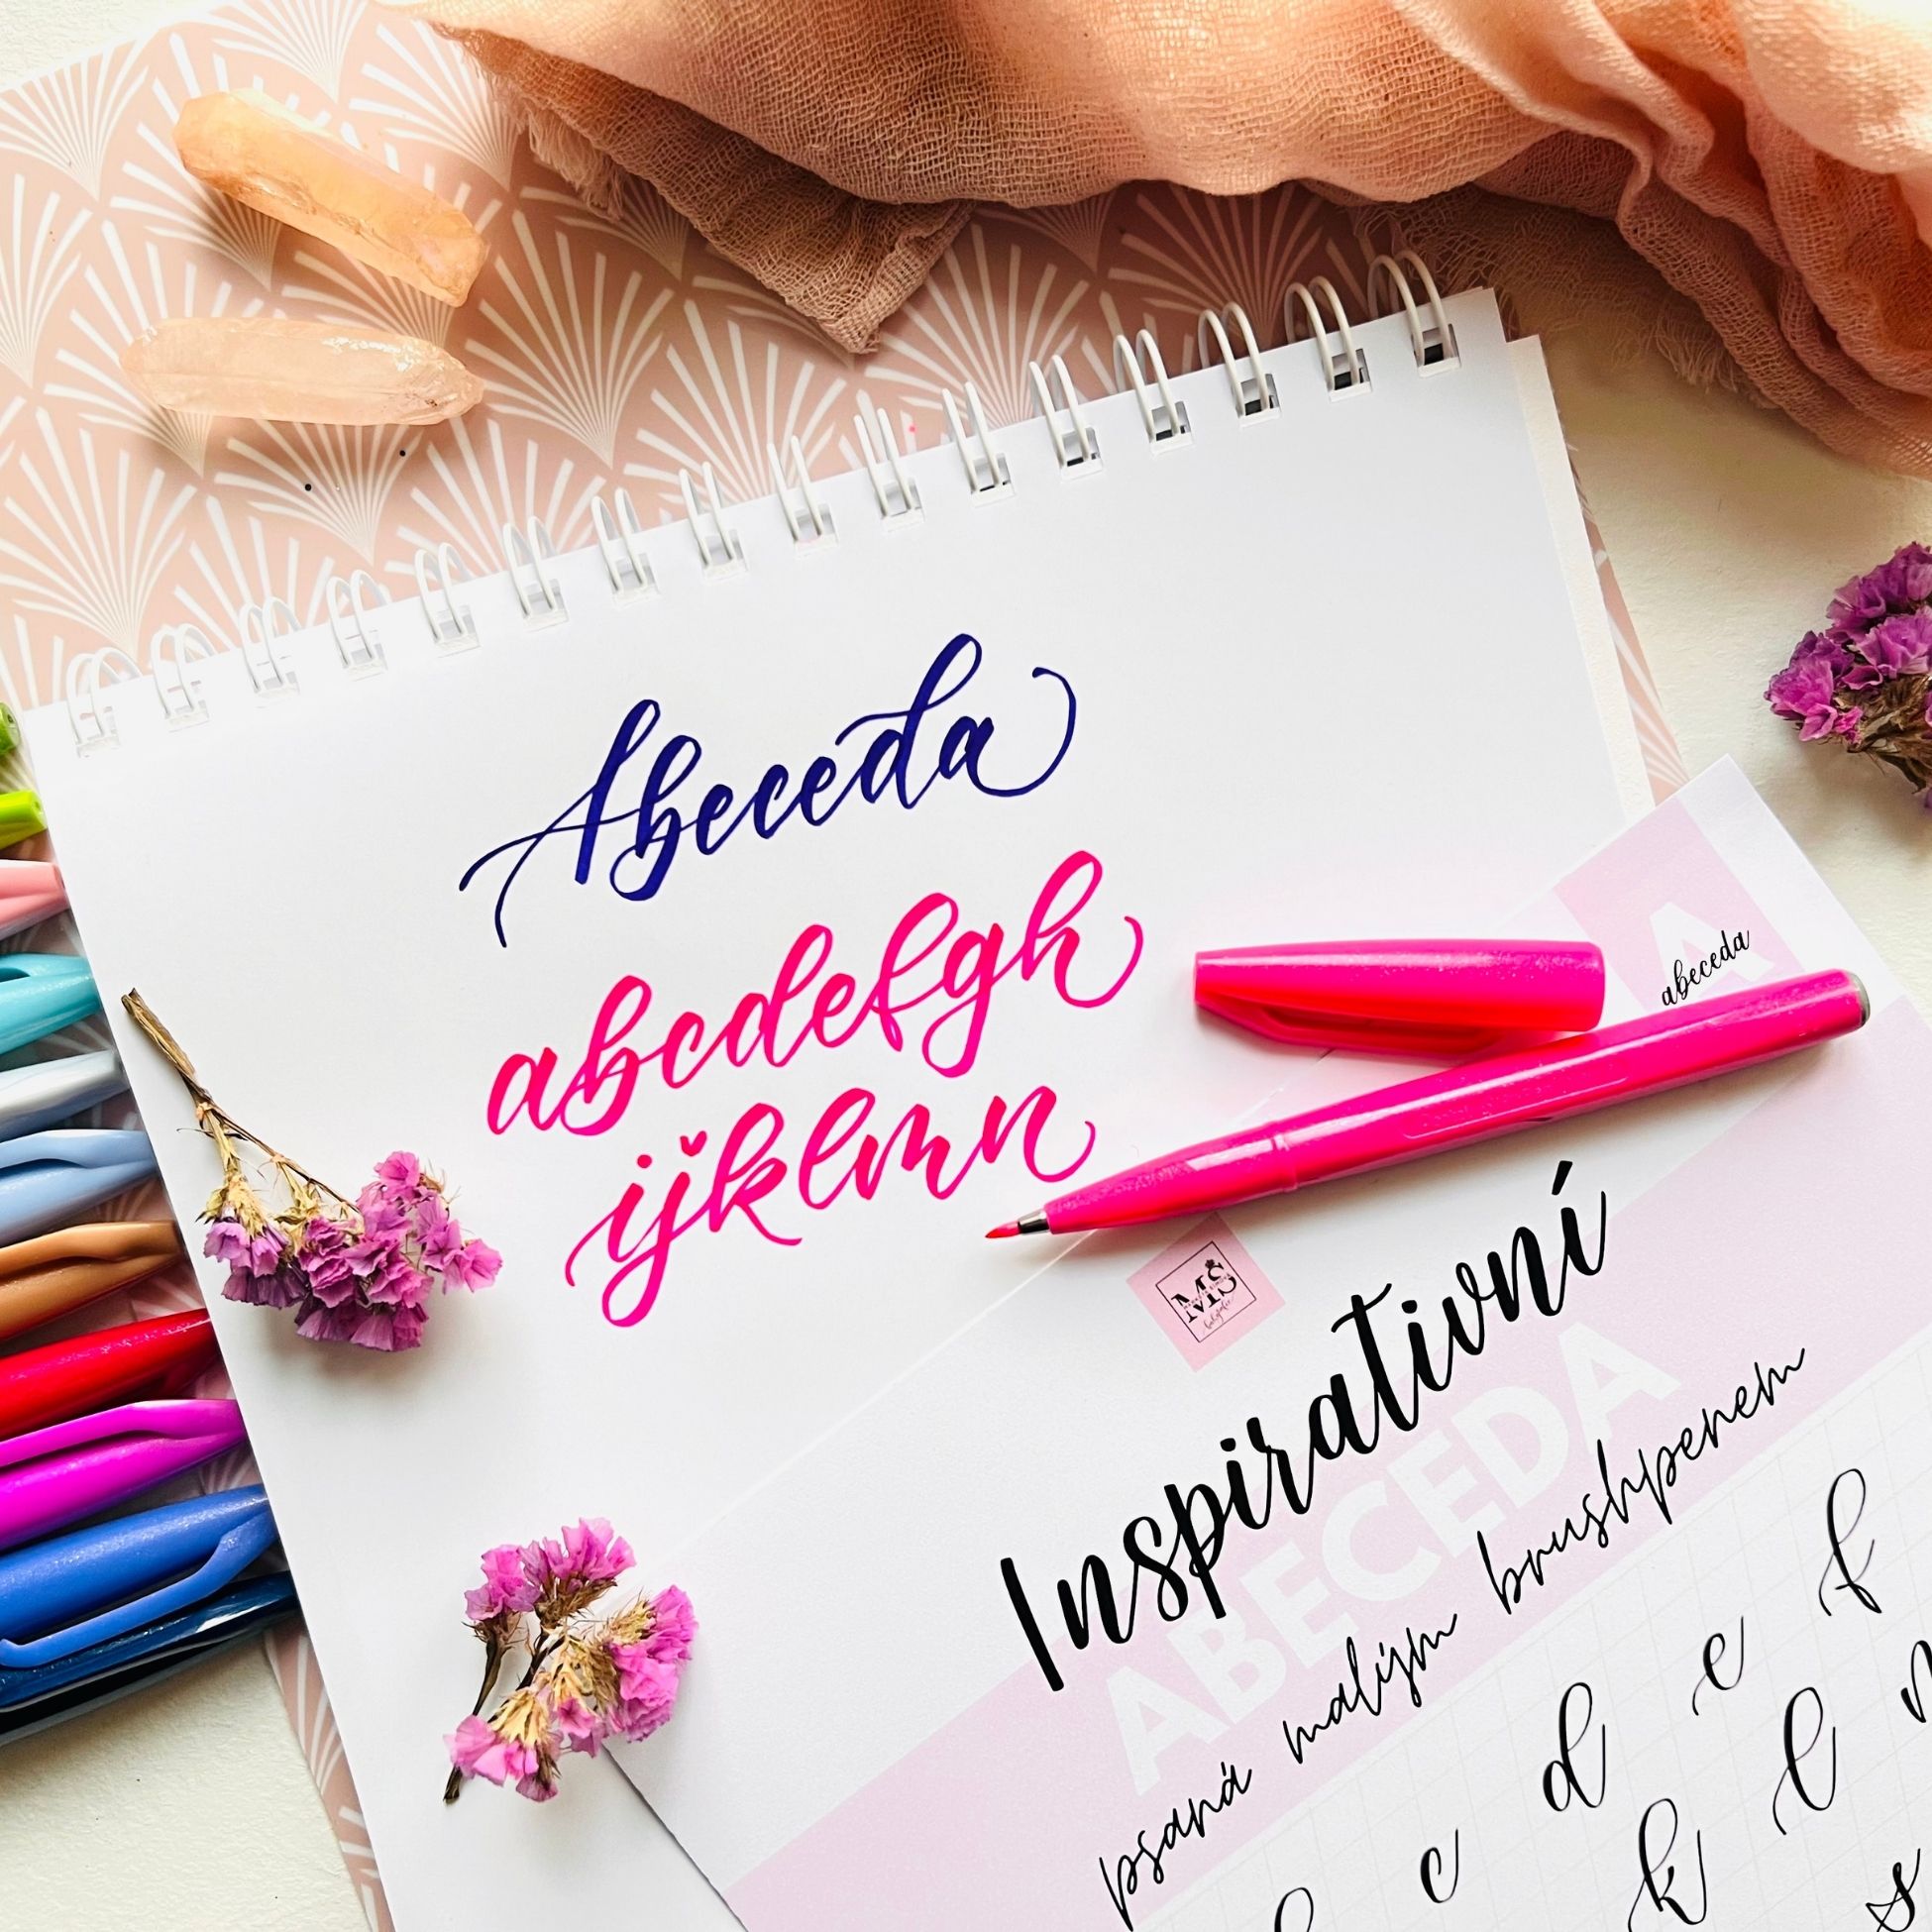 Abeceda
abcdefgh
ijklmn
A
abeceda
MS
Inspirativní
ABECEDA
psaná malým brushpenem
c d e f
k l
s